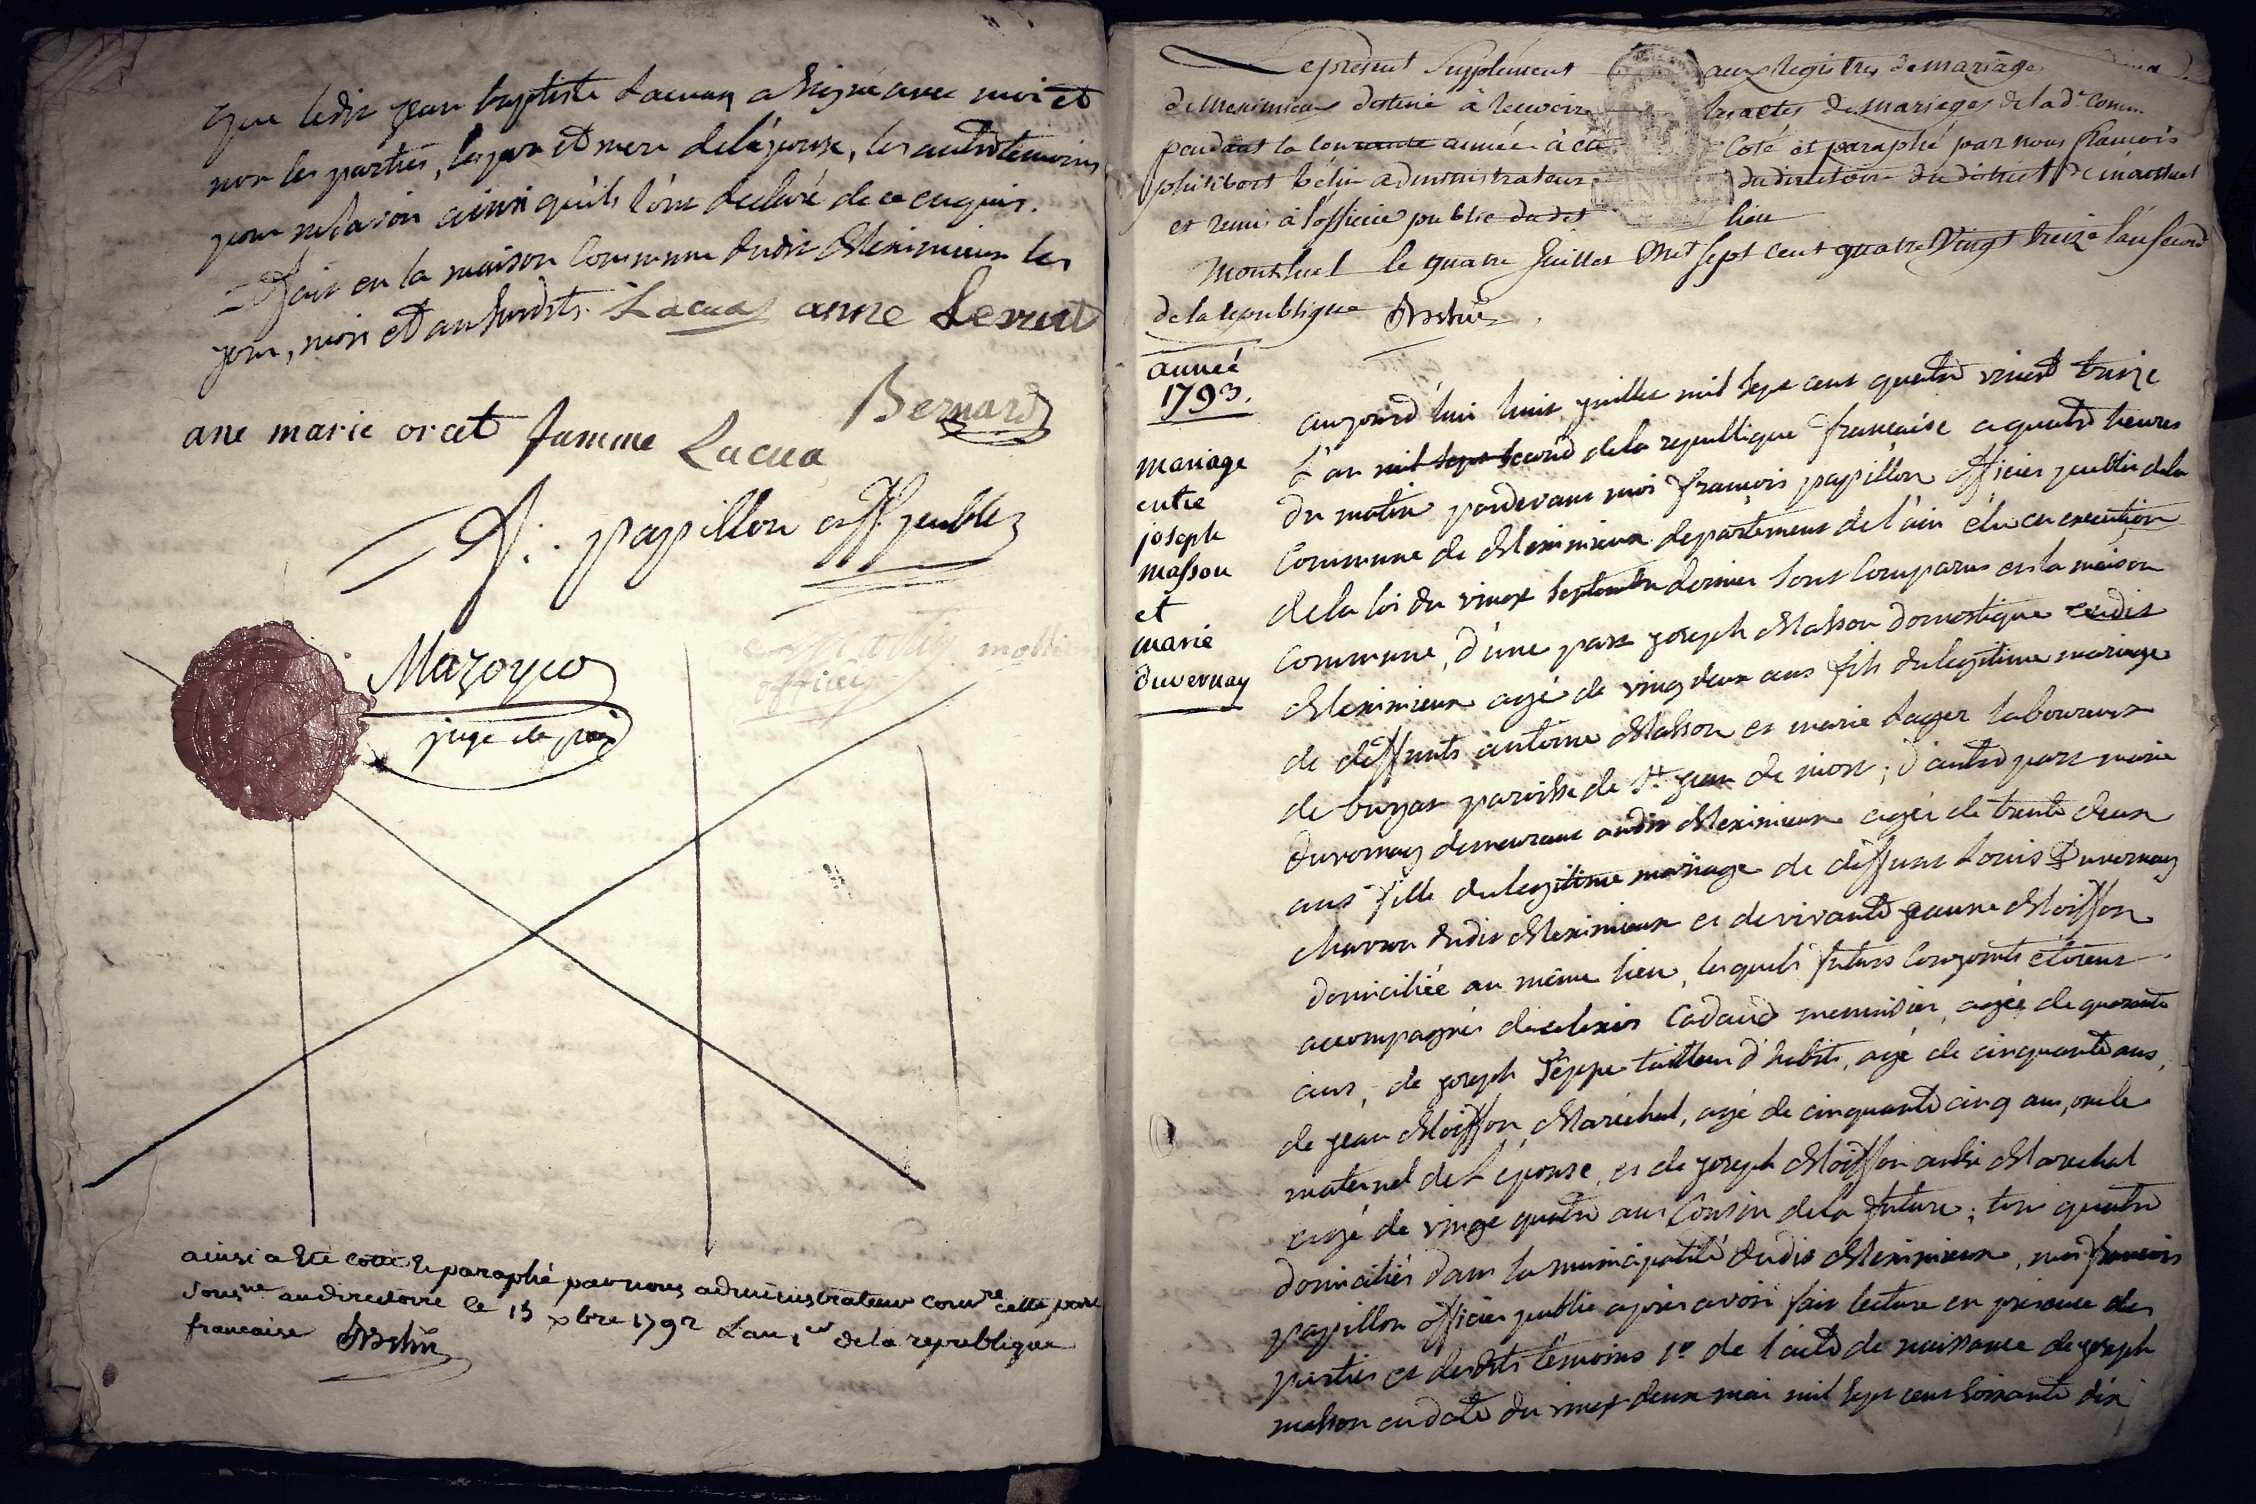 que ledit jean baptiste Lacua a signé avec moi et
non les parties, les pere et mere de l'épouse, les autres temoins
pour ne savoir ainsi qu'ils l'ont declaré de ce enquis.
Fait en la maison Commune dudit Meximieux les
jour, mois et an susdits. Lacua anne
Bernard
ane marie orcet famme Lacua
f. papillon off. public
Mazoyer
juge de paix
officier
ainsi a été cotté & paraphé par nous administrateur
soussné au directoire le 15 xbre 1792 L'an 1er de la republique
francaise
Le présent Supplément aux registres de mariage
de Meximieux destiné à recevoir les actes de mariages de lad. Comm.
pendant la courante année à été Coté et paraphé par nous françois
philibert administrateur du directoire du district de montluel
et remi à l'officier public dudit lieu
Montluel le quatre Juillet Mil sept cent quatre Vingt treize l'an second
de la republique
année
1793.
mariage
entre
joseph
masson
et
marie
duvernay
aujourd'hui huit juillet mil sept cent quatre vingt treize
L'an mil sept second de la republique francaise a quatre heures
du matin pardevant moi françois papillon officier public de la
Commune de Meximieux departement de l'ain élu en execution
de la loi du vingt septembre dernier sont Comparus en la maison
commune, d'une part joseph Masson domestique
Meximieux agé de vingt deux ans fils du legitime mariage
de deffunts antoine Masson et marie Lager laboureurs
de paroisse de St jean de niost; d'autre part marie
duvernay demeurant audit Meximieux agée de trente deux
ans fille du legitime mariage de deffunt Louis Duvernay
dudit Meximieux et de vivante jeanne Moiffon
domiciliée au même lieu, lesquels futurs Conjoints étoient
accompagnés de alexis Cadaud menuisier, agée de quarante
ans, de joseph tailleur d'habits, agé de cinquante ans,
de jean Moiffon Maréchal, agé de cinquante cinq ans, oncle
maternel de L'épouse, et de joseph Moiffon aussi Marechal
agé de vingt quatre ans Cousin de la future; tous quatre
domiciliés dans la municipalité dudit Meximieux, moi francois
papillon officier public apres avoir fait lecture en présence des
parties et desdits temoins 1º de l'acte de naissance de joseph
masson en date du vingt deux mai mil sept cent soixante dix